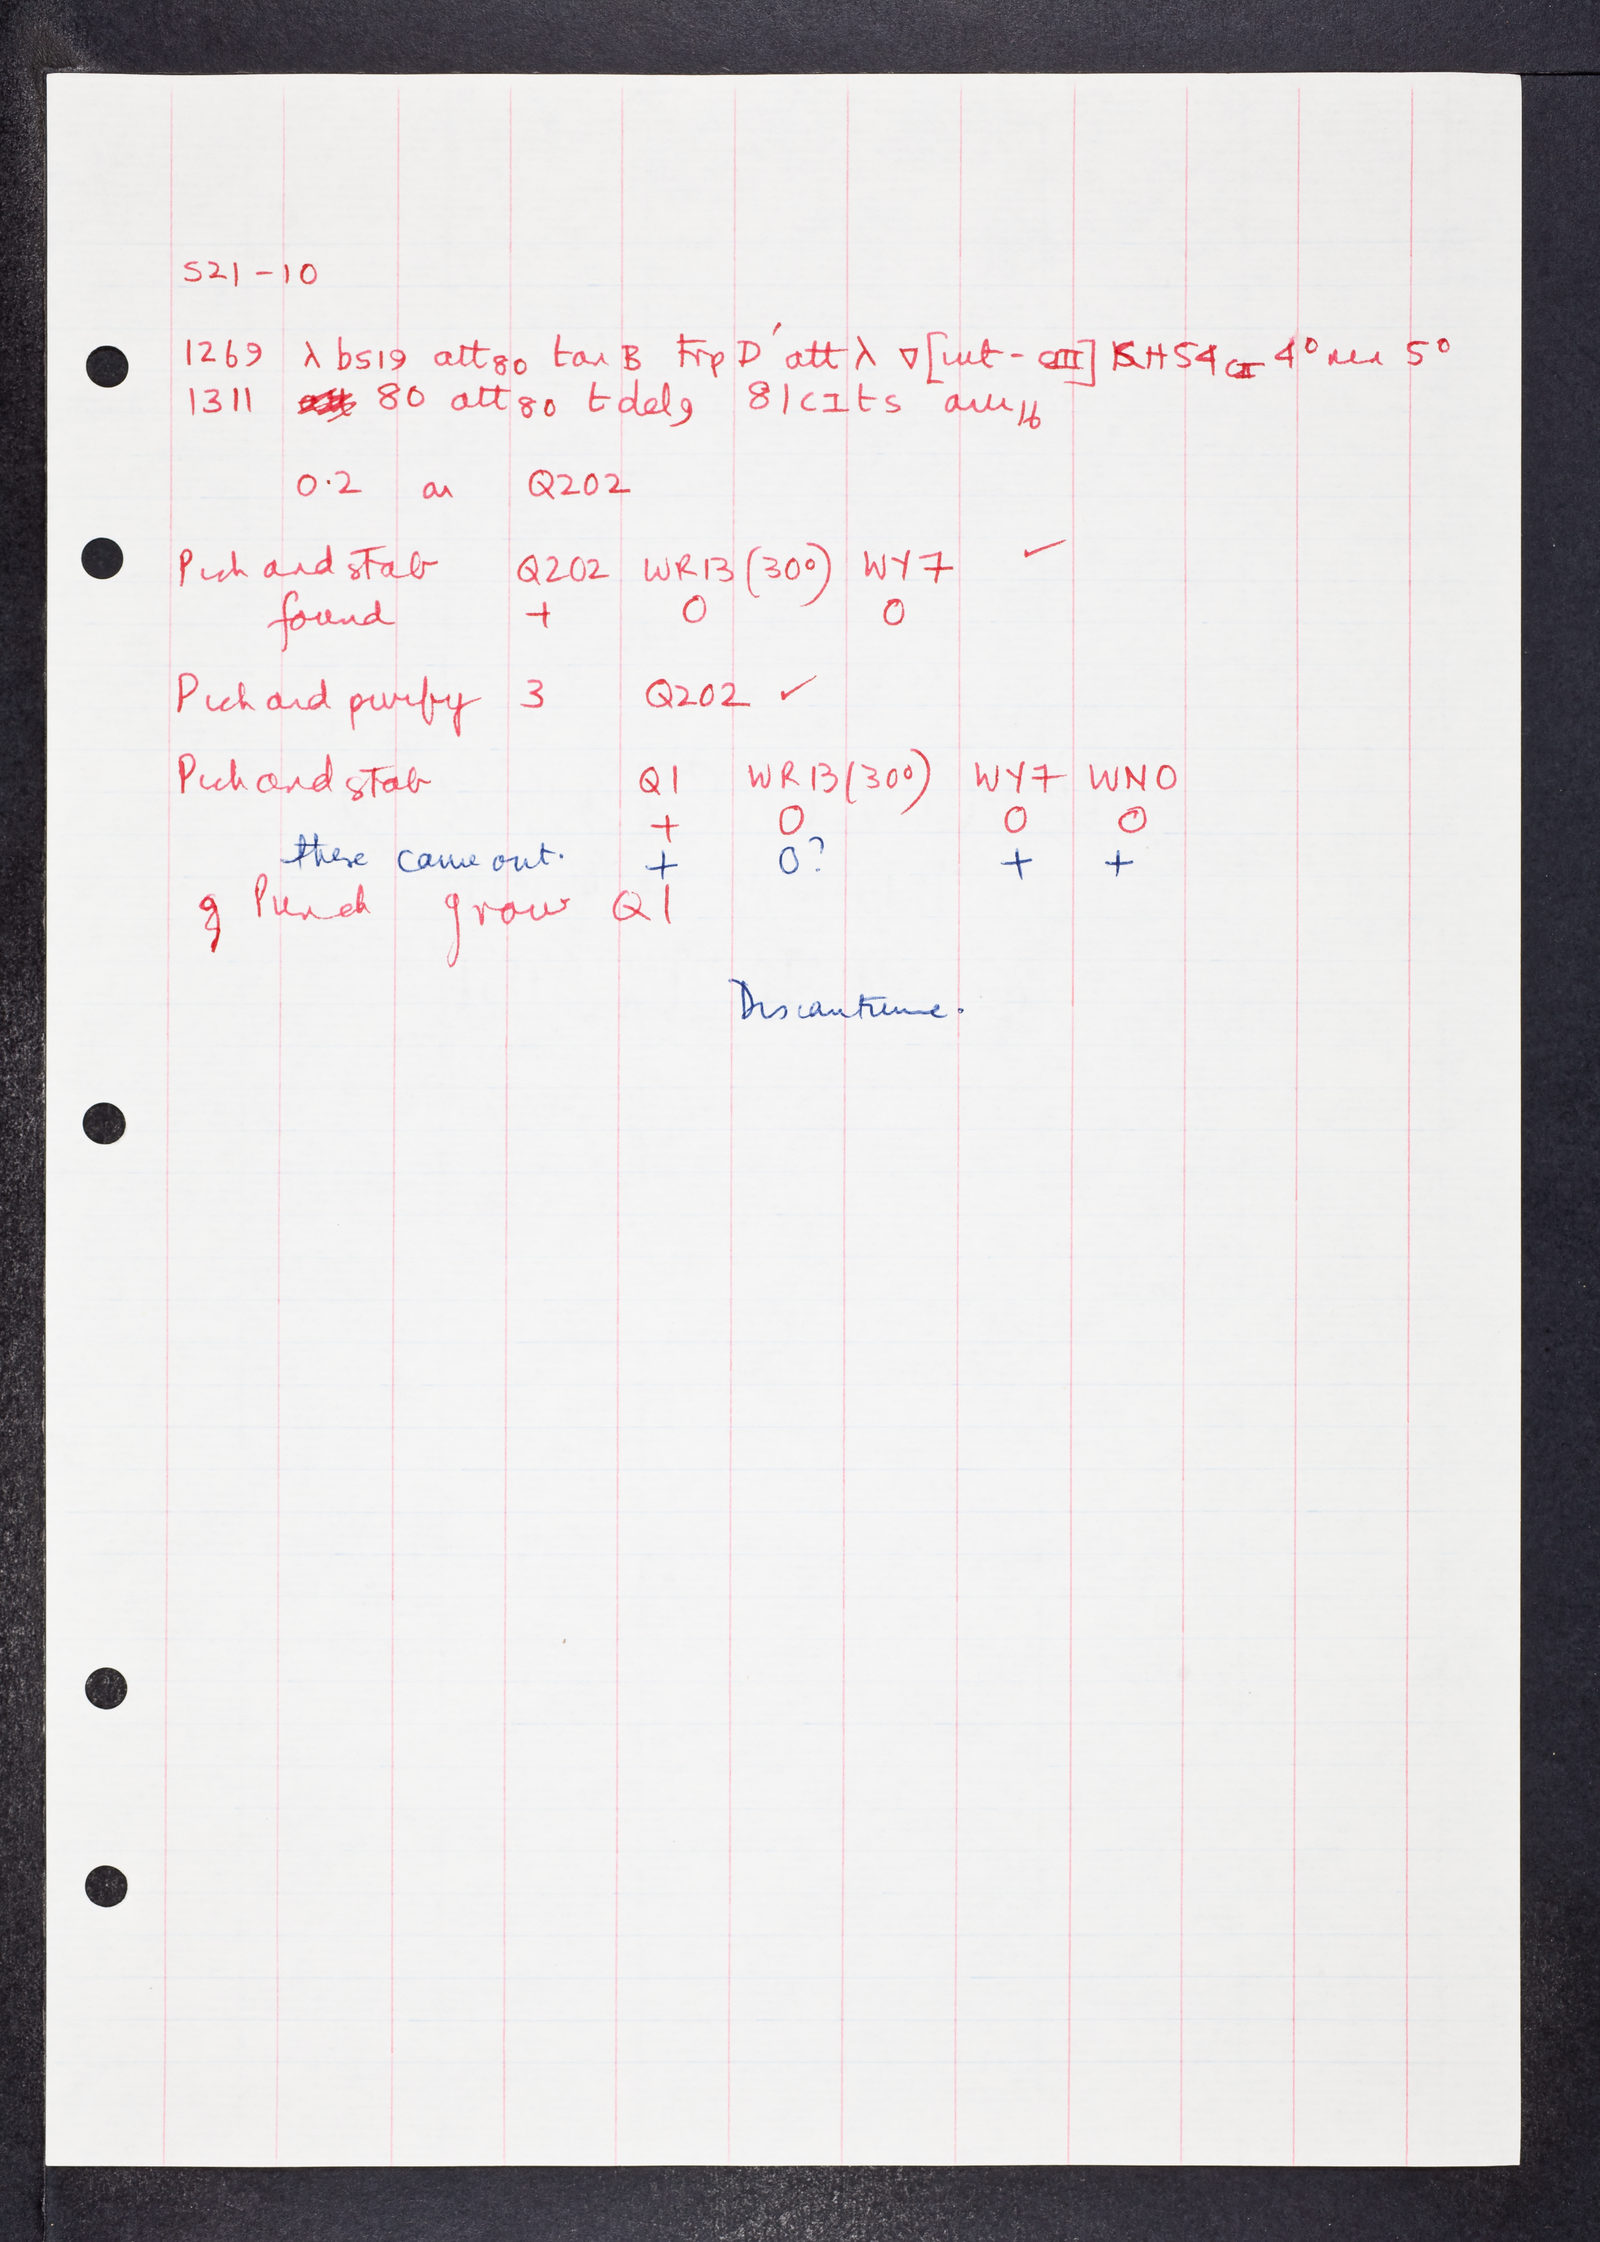 S21-10
1269 λ b519 att80 ton B trp D' att λ ∇[int-cIII] KH54 cI 4° 5°
1311 80 att80 t del9 81 cI ts am16
0.2 on Q202
Pick and stab Q202 WR13 (30°) WY7 ✓
found + 0 0
Pick and purify 3 Q202 ✓
Pick and stab Q1 WR13 (30°) WY7 WNO
+ 0 0 0
these came out. + 0? + +
Punch grow Q1
Discontinue.